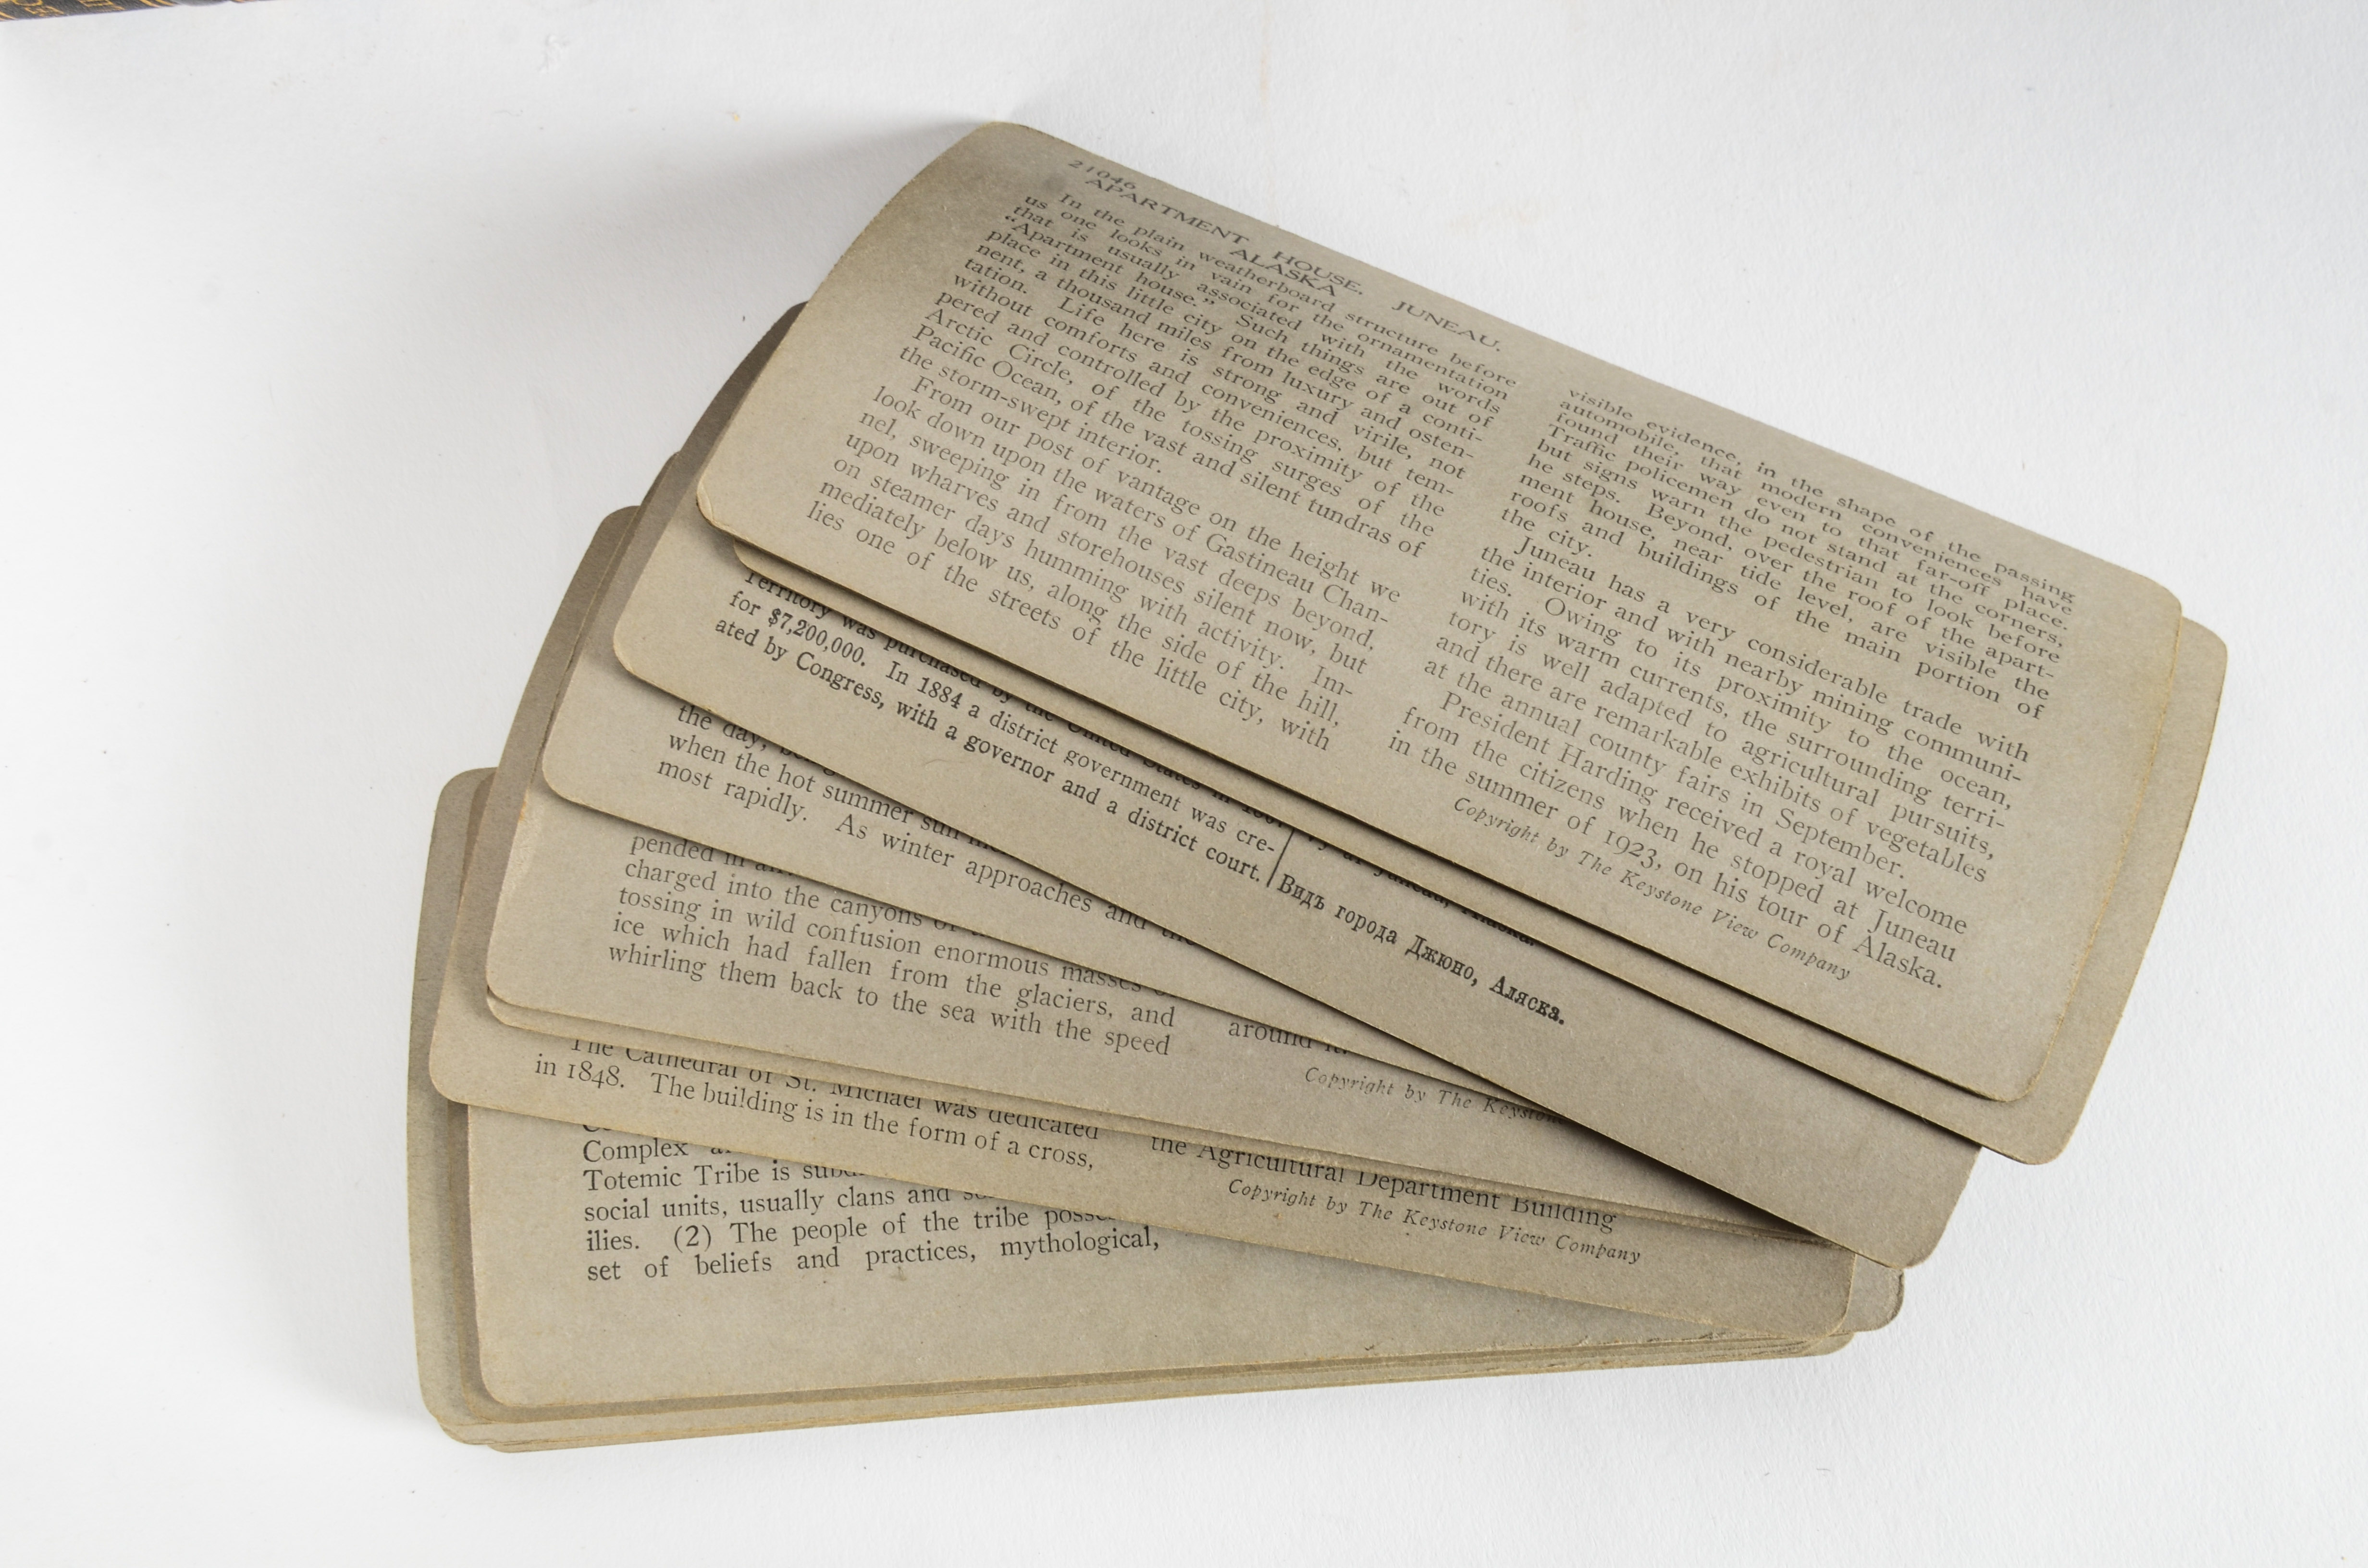 21046
APARTMENT HOUSE. JUNEAU.
ALASKA
In the plain weatherboard structure before
us one looks in vain for the ornamentation
that is usually associated with the words
“Apartment house.” Such things are out of
place in this little city on the edge of a conti-
nent, a thousand miles from luxury and osten-
tation. Life here is strong and virile, not
without comforts and conveniences, but tem-
pered and controlled by the proximity of the
Arctic Circle, of the tossing surges of the
Pacific Ocean, of the vast and silent tundras of
the storm-swept interior.
From our post of vantage on the height we
look down upon the waters of Gastineau Chan-
nel, sweeping in from the vast deeps beyond,
upon wharves and storehouses silent now, but
on steamer days humming with activity. Im-
mediately below us, along the side of the hill,
lies one of the streets of the little city, with
visible evidence, in the shape of the passing
automobile, that modern conveniences have
found their way even to that far-off place.
Traffic policemen do not stand at the corners,
but signs warn the pedestrian to look before
he steps. Beyond, over the roof of the apart-
ment house, near tide level, are visible the
roofs and buildings of the main portion of
the city.
Juneau has a very considerable trade with
the interior and with nearby mining communi-
ties. Owing to its proximity to the ocean,
with its warm currents, the surrounding terri-
tory is well adapted to agricultural pursuits,
and there are remarkable exhibits of vegetables
at the annual county fairs in September.
President Harding received a royal welcome
from the citizens when he stopped at Juneau
in the summer of 1923, on his tour of Alaska.
Copyright by The Keystone View Company
Territory was purchased by the United States in
for $7,200,000. In 1884 a district government was cre-
ated by Congress, with a governor and a district court.
Видъ города Джюно, Аляска.
the day,
when the hot summer sun
most rapidly. As winter approaches and the
around it.
Copyright by The Keystone
pended in
charged into the canyons of
tossing in wild confusion enormous masses
ice which had fallen from the glaciers, and
whirling them back to the sea with the speed
The Cathedral of St. Michael was dedicated
in 1848. The building is in the form of a cross,
the Agricultural Department Building
Copyright by The Keystone View Company
Complex
Totemic Tribe is
social units, usually clans and
ilies. (2) The people of the tribe
set of beliefs and practices, mythological,